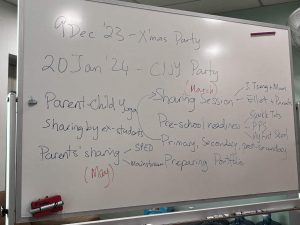 9 Dec '23 - X'mas Party
20 Jan '24 - CNY Party
(March)
Parent-child Yoga
Sharing Session
Sharing by ex-students
Pre-school readiness
Primary, Secondary, post-secondary
Parents' sharing
SPED
Mainstream
Preparing Portfolio
(May)
I. Tseng + Mum
Elliot + Parents
PPS